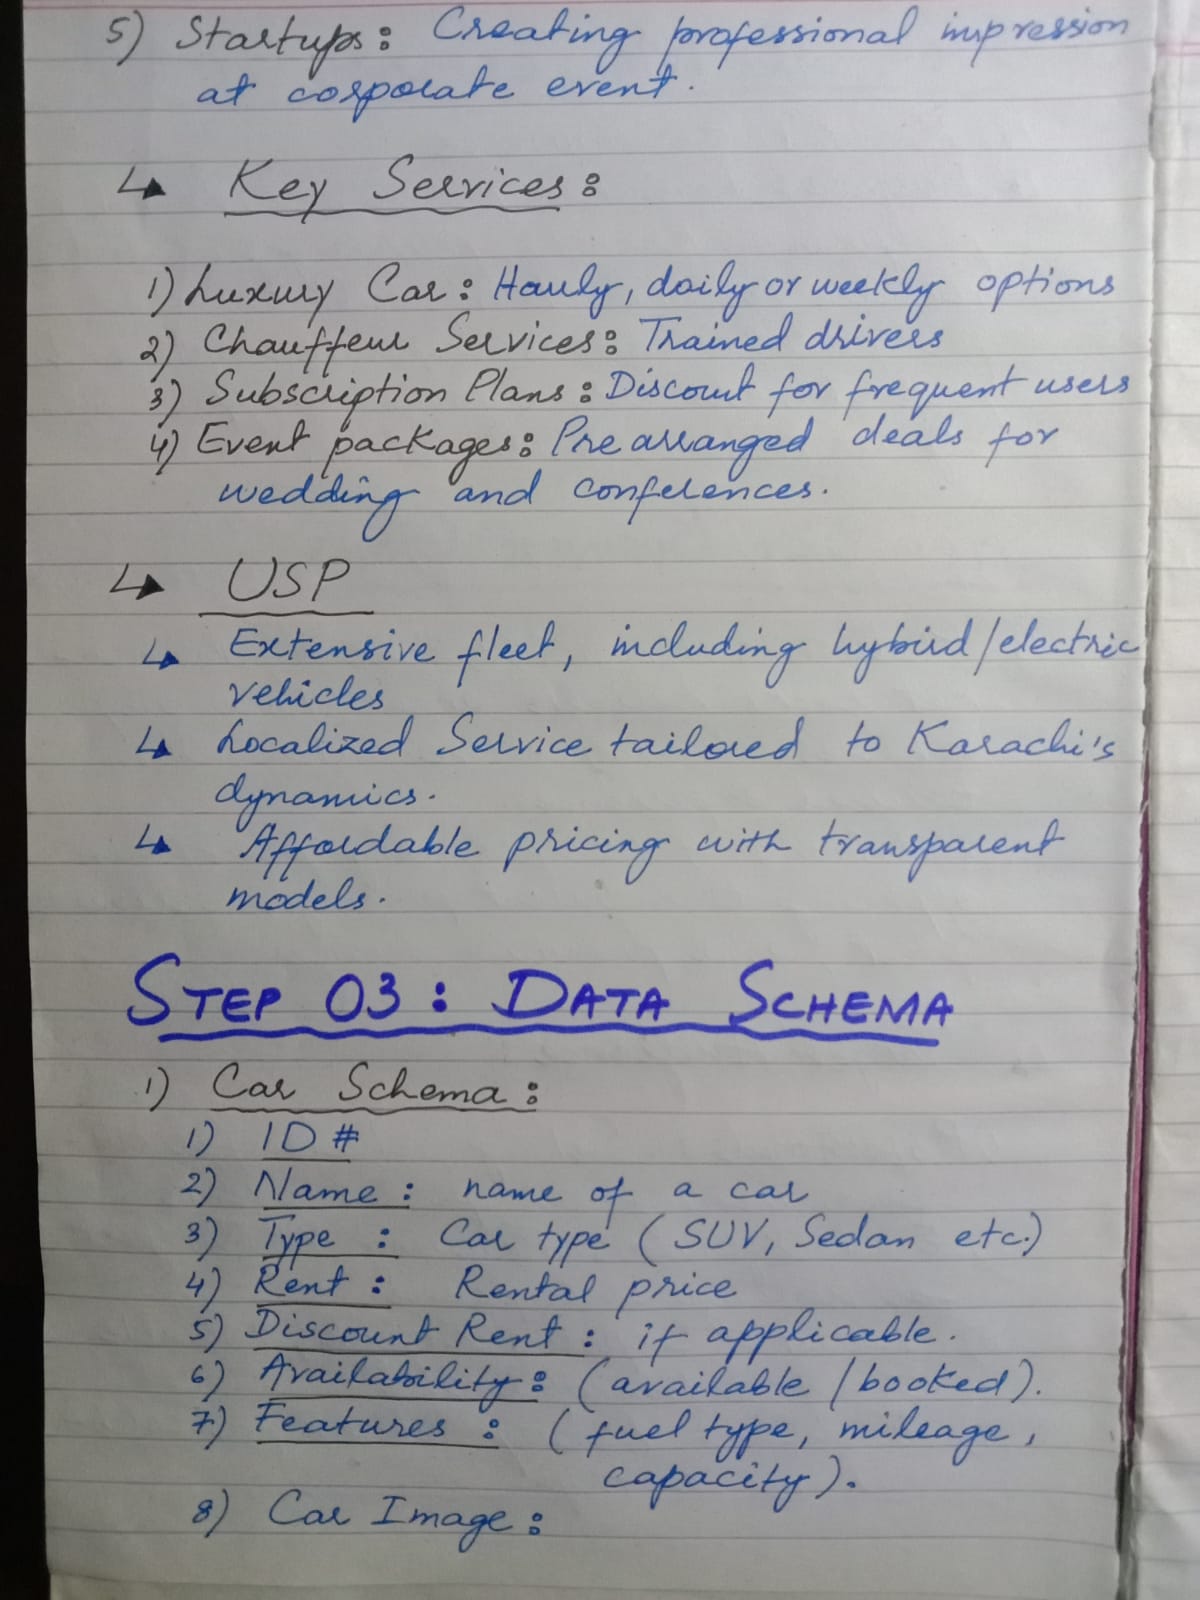 5) Startups: Creating professional impression
at corporate event.
↳ Key Services:
1) Luxury Car: Hourly, daily or weekly options
2) Chauffeur Services: Trained drivers
3) Subscription Plans: Discount for frequent users
4) Event packages: Pre arranged deals for
wedding and conferences.
↳ USP
↳ Extensive fleet, including hybrid/electric
vehicles
↳ Localized Service tailored to Karachi's
dynamics.
↳ Affordable pricing with transparent
models.
STEP 03: DATA SCHEMA
1) Car Schema:
1) ID #
2) Name: name of a car
3) Type: Car type (SUV, Sedan etc.)
4) Rent: Rental price
5) Discount Rent: if applicable.
6) Availability: (available/booked).
7) Features: (fuel type, mileage,
capacity).
8) Car Image: